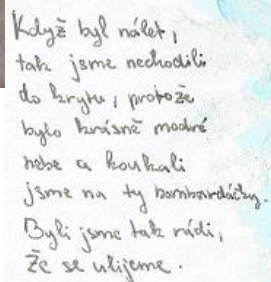 Když byl nálet,
tak jsme nechodili
do krytu, protože
bylo krásně modré
nebe a koukali
jsme na ty bombardáčky.
Byli jsme tak rádi,
že se ulijeme.